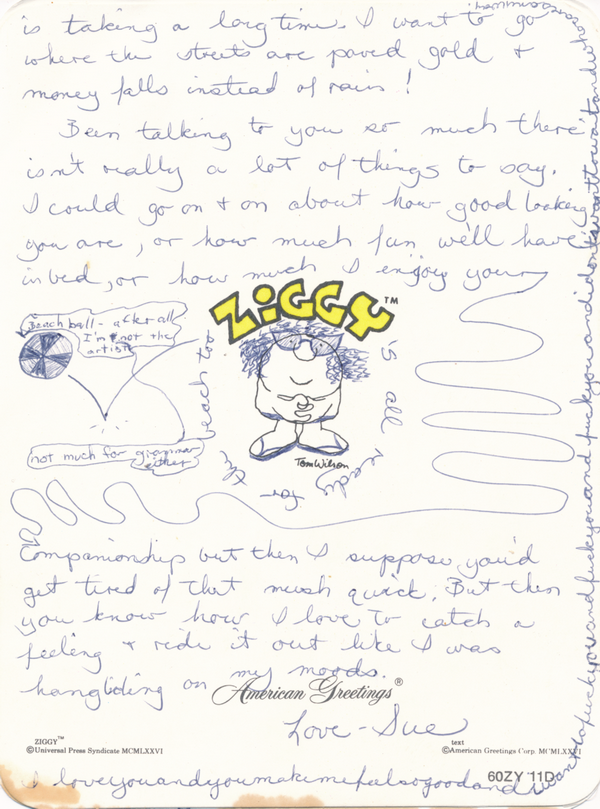 is taking a long time. I want to go
where the streets are paved gold &
money falls instead of rain!
Been talking to you so much there
isn't really a lot of things to say.
I could go on & on about how good looking
you are, or how much fun we'll have
in bed, or how much I enjoy your
ZIGGY™
Beach ball - after all
I'm not the
artist
not much for grammar
either
is all ready for the beach
Tom Wilson
Companionship but then I suppose you'd
get tired of that mush quick; But then
you know how I love to catch a
feeling & ride it out like I was
hangliding on my moods.
American Greetings®
Love - Sue
ZIGGY™
©Universal Press Syndicate MCMLXXVI
text
©American Greetings Corp. MCMLXXVI
60ZY 11D
I loveyouandyoumakemefeelsogoodandiwanttofuckyouandfuckyouandfuckyouandidontwanttowaitand